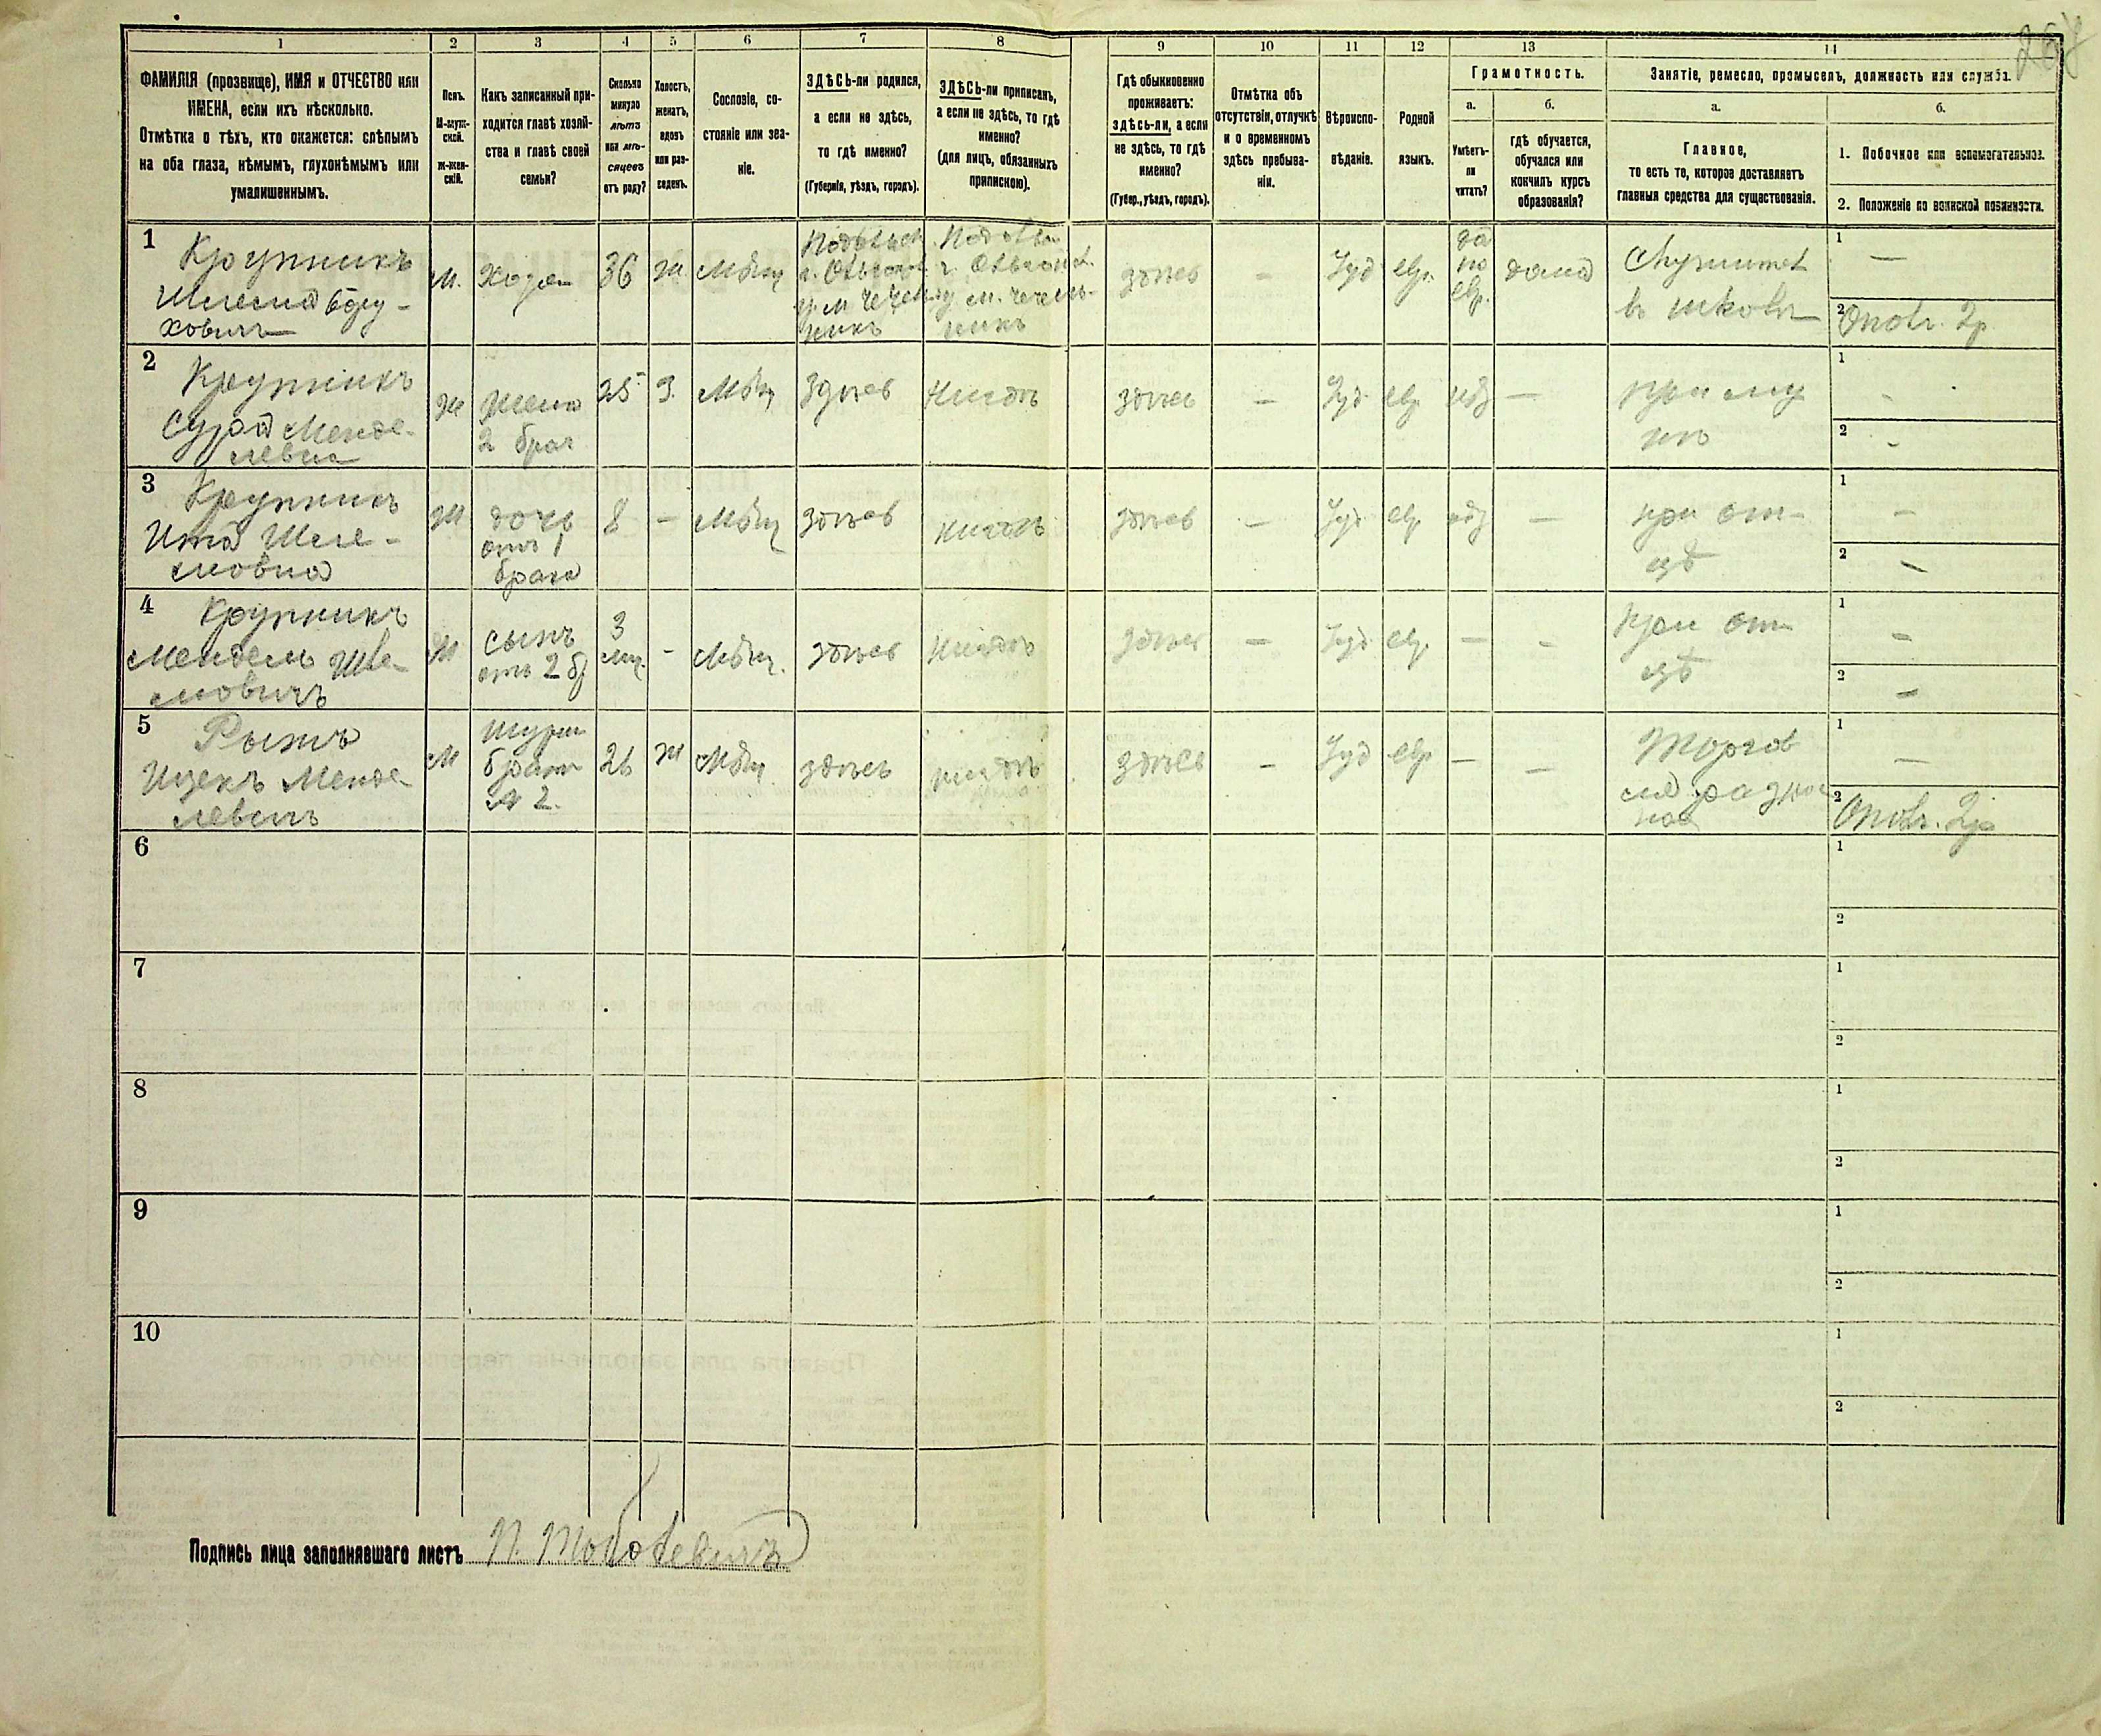 267
1 2 3 4 5 6 7 8 9 10 11 12 13 14
ФАМИЛІЯ (прозвище), ИМЯ и ОТЧЕСТВО или
ИМЕНА, если ихъ нѣсколько.
Отмѣтка о тѣхъ, кто окажется: слѣпымъ
на оба глаза, нѣмымъ, глухонѣмымъ или
умалишеннымъ.
Полъ.
М-муж-
ской.
ж-жен-
скій.
Какъ записанный при-
ходится главѣ хозяй-
ства и главѣ своей
семьи?
Сколько
минуло
лѣтъ
или мѣ-
сяцевъ
отъ роду?
Холостъ,
женатъ,
вдовъ
или раз-
веденъ.
Сословіе, со-
стояніе или зва-
ніе.
ЗДѢСЬ-ли родился,
а если не здѣсь,
то гдѣ именно?
(Губернія, уѣздъ, городъ).
ЗДѢСЬ-ли приписанъ,
а если не здѣсь, то гдѣ
именно?
(для лицъ, обязанныхъ
припискою).
Гдѣ обыкновенно
проживаетъ:
здѣсь-ли, а если
не здѣсь, то гдѣ
именно?
(Губер., уѣздъ, городъ).
Отмѣтка объ
отсутствіи, отлучкѣ
и о временномъ
здѣсь пребыва-
ніи.
Вѣроиспо-
вѣданіе.
Родной
языкъ.
Грамотность.
а.
Умѣетъ-
ли
читать?
б.
гдѣ обучается,
обучался или
кончилъ курсъ
образованія?
Занятіе, ремесло, промыселъ, должность или служба.
а.
Главное,
то есть то, которое доставляетъ
главныя средства для существованія.
б.
1. Побочное или вспомогательное.
2. Положеніе по воинской повинности.
1
Крупникъ
Шлема Бору-
ховичъ
м.
Хозяи
36
ж
Мѣщ
Подольск
г. Ольгопол
у. м Чечель
никъ
Подольс
г. Ольгопол.
у. м. Чечель-
никъ
здѣсь
–
Іуд
евр.
да
по
евр.
дома
Служитель
въ школѣ
1
—
2
Опол. 2р
2
Крупникъ
Сура Менде-
левна
ж
Жена
2 брач
25
З.
Мѣщ
Здѣсь
Нигдѣ
здѣсь
–
Іуд
евр
нѣт
–
при му
жѣ
1
-
2
-
3
Крупникъ
Ита Шле-
мовна
ж
дочь
отъ 1
брака
8
–
Мѣщ
здѣсь
нигдѣ
здѣсь
–
Іуд
евр
нѣт
–
при от-
цѣ
1
–
2
–
4
Крупникъ
Мендель Шле-
мовичъ
М
сынъ
отъ 2 бр
3
мц.
-
Мѣщ.
здѣсь
Нигдѣ
здѣсь
–
Іуд
евр.
–
-
при от
цѣ
1
–
2
–
5
Рыжъ
Ицекъ Менде
левичъ
М
Шурин
братъ
№ 2.
26
ж
Мѣщ
здѣсь
нигдѣ
здѣсь
–
Іуд
евр
–
–
Торгов
ля разно
ная
1
–
2
Опол. 2р
6
1
2
7
1
2
8
1
2
9
1
2
10
1
2
Подпись лица заполнявшаго листъ